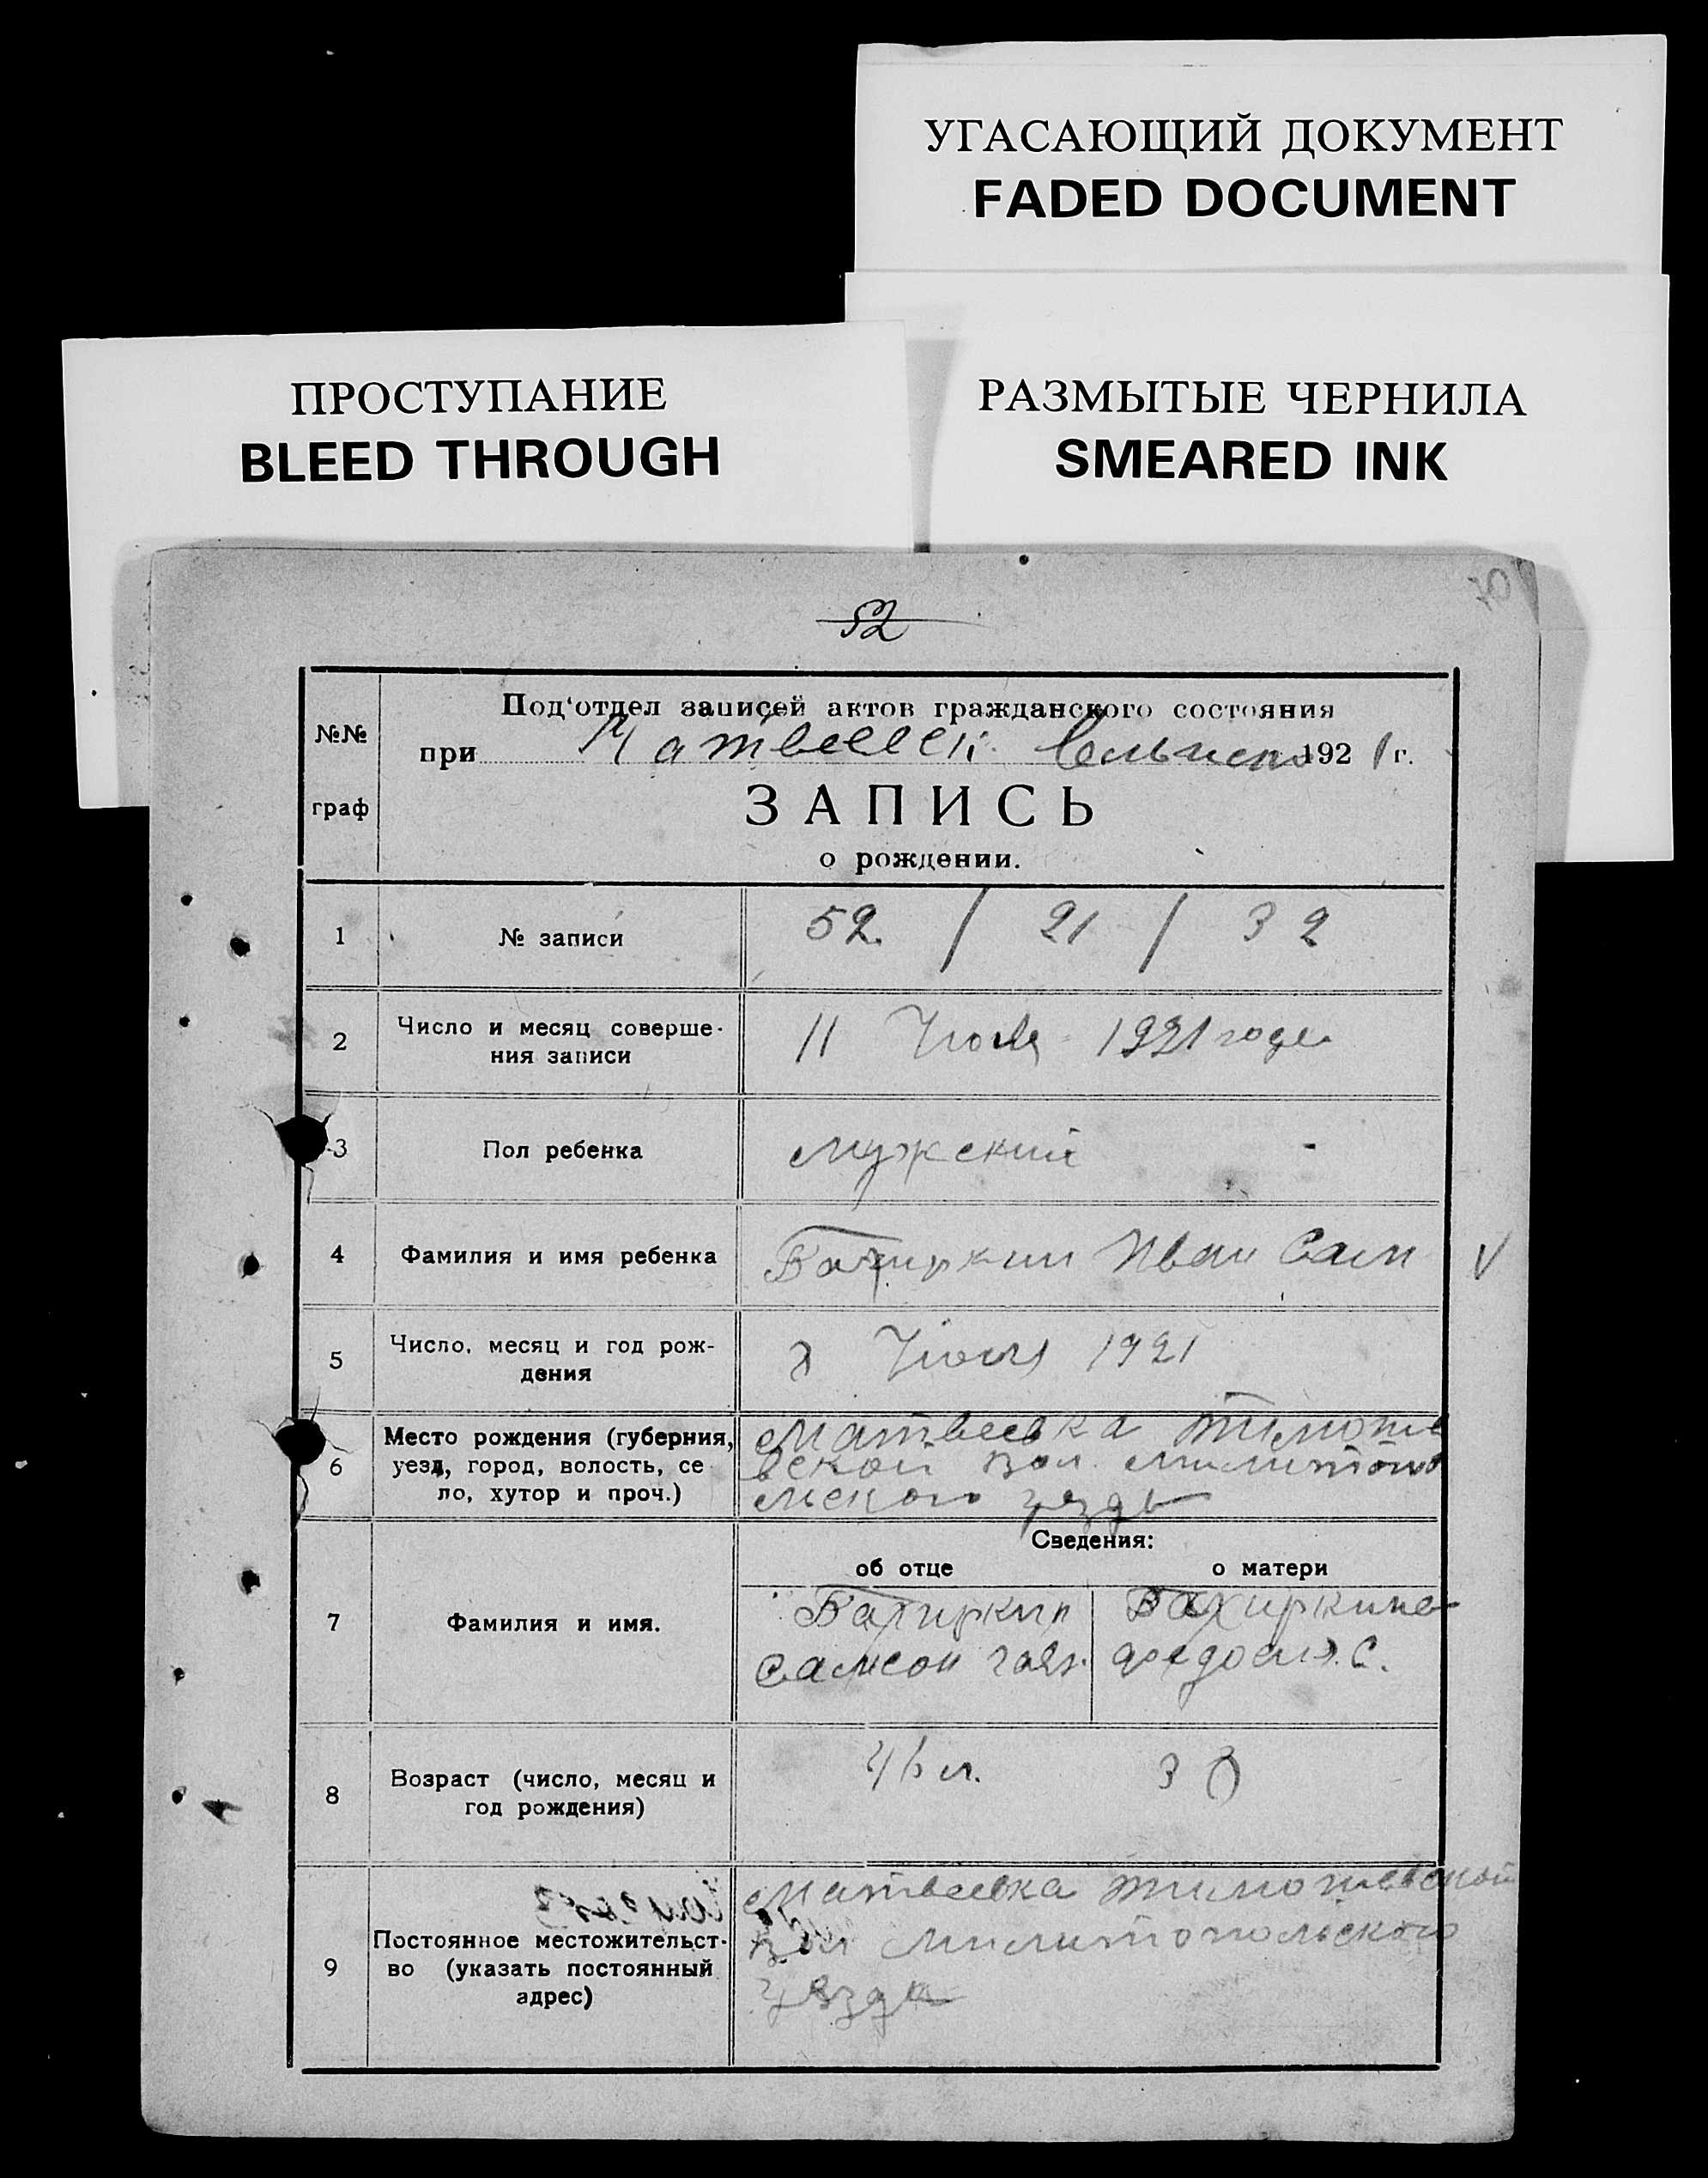 УГАСАЮЩИЙ ДОКУМЕНТ
FADED DOCUMENT
ПРОСТУПАНИЕ
BLEED THROUGH
РАЗМЫТЫЕ ЧЕРНИЛА
SMEARED INK
52
№№ граф
Под'отдел записей актов гражданского состояния
при Матвеевск. Сельисп 1921 г.
ЗАПИСЬ
о рождении.
1 № записи 52. / 21 / 32
2 Число и месяц соверше-
ния записи 11 Июля 1921 года
3 Пол ребенка мужский
4 Фамилия и имя ребенка Бахиркин Иван Сам V
5 Число, месяц и год рож-
дения Июля 1921
6 Место рождения (губерния,
уезд, город, волость, се
ло, хутор и проч.)
Матвеевка Тимоше
вской вол. Милитопо
льского уезда
Сведения:
об отце о матери
7 Фамилия и имя.
Бахиркин Бахиркина
Самсон Федосия. С.
8 Возраст (число, месяц и
год рождения)
46 л. 30
9 Постоянное местожительст-
во (указать постоянный
адрес)
Матвеевка Тимошевской
вол Милитопольского
уезда